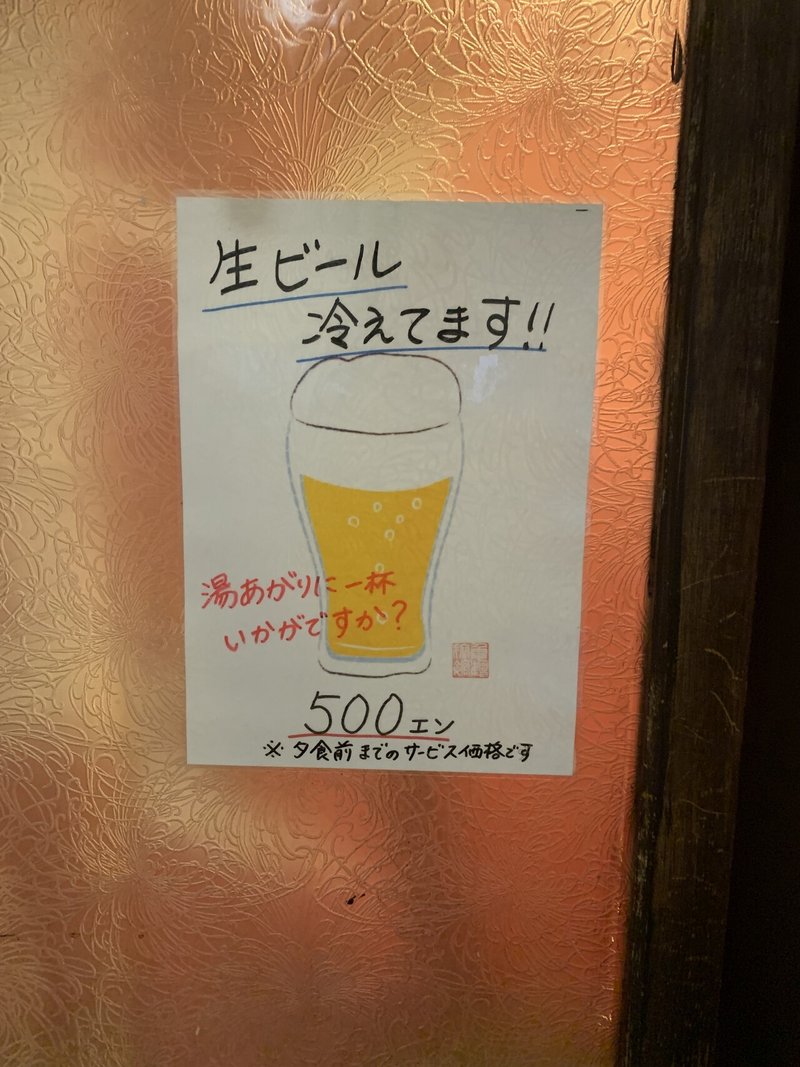 生ビール
冷えてます!!
湯あがりに一杯
いかがですか?
500エン
※夕食前までのサービス価格です